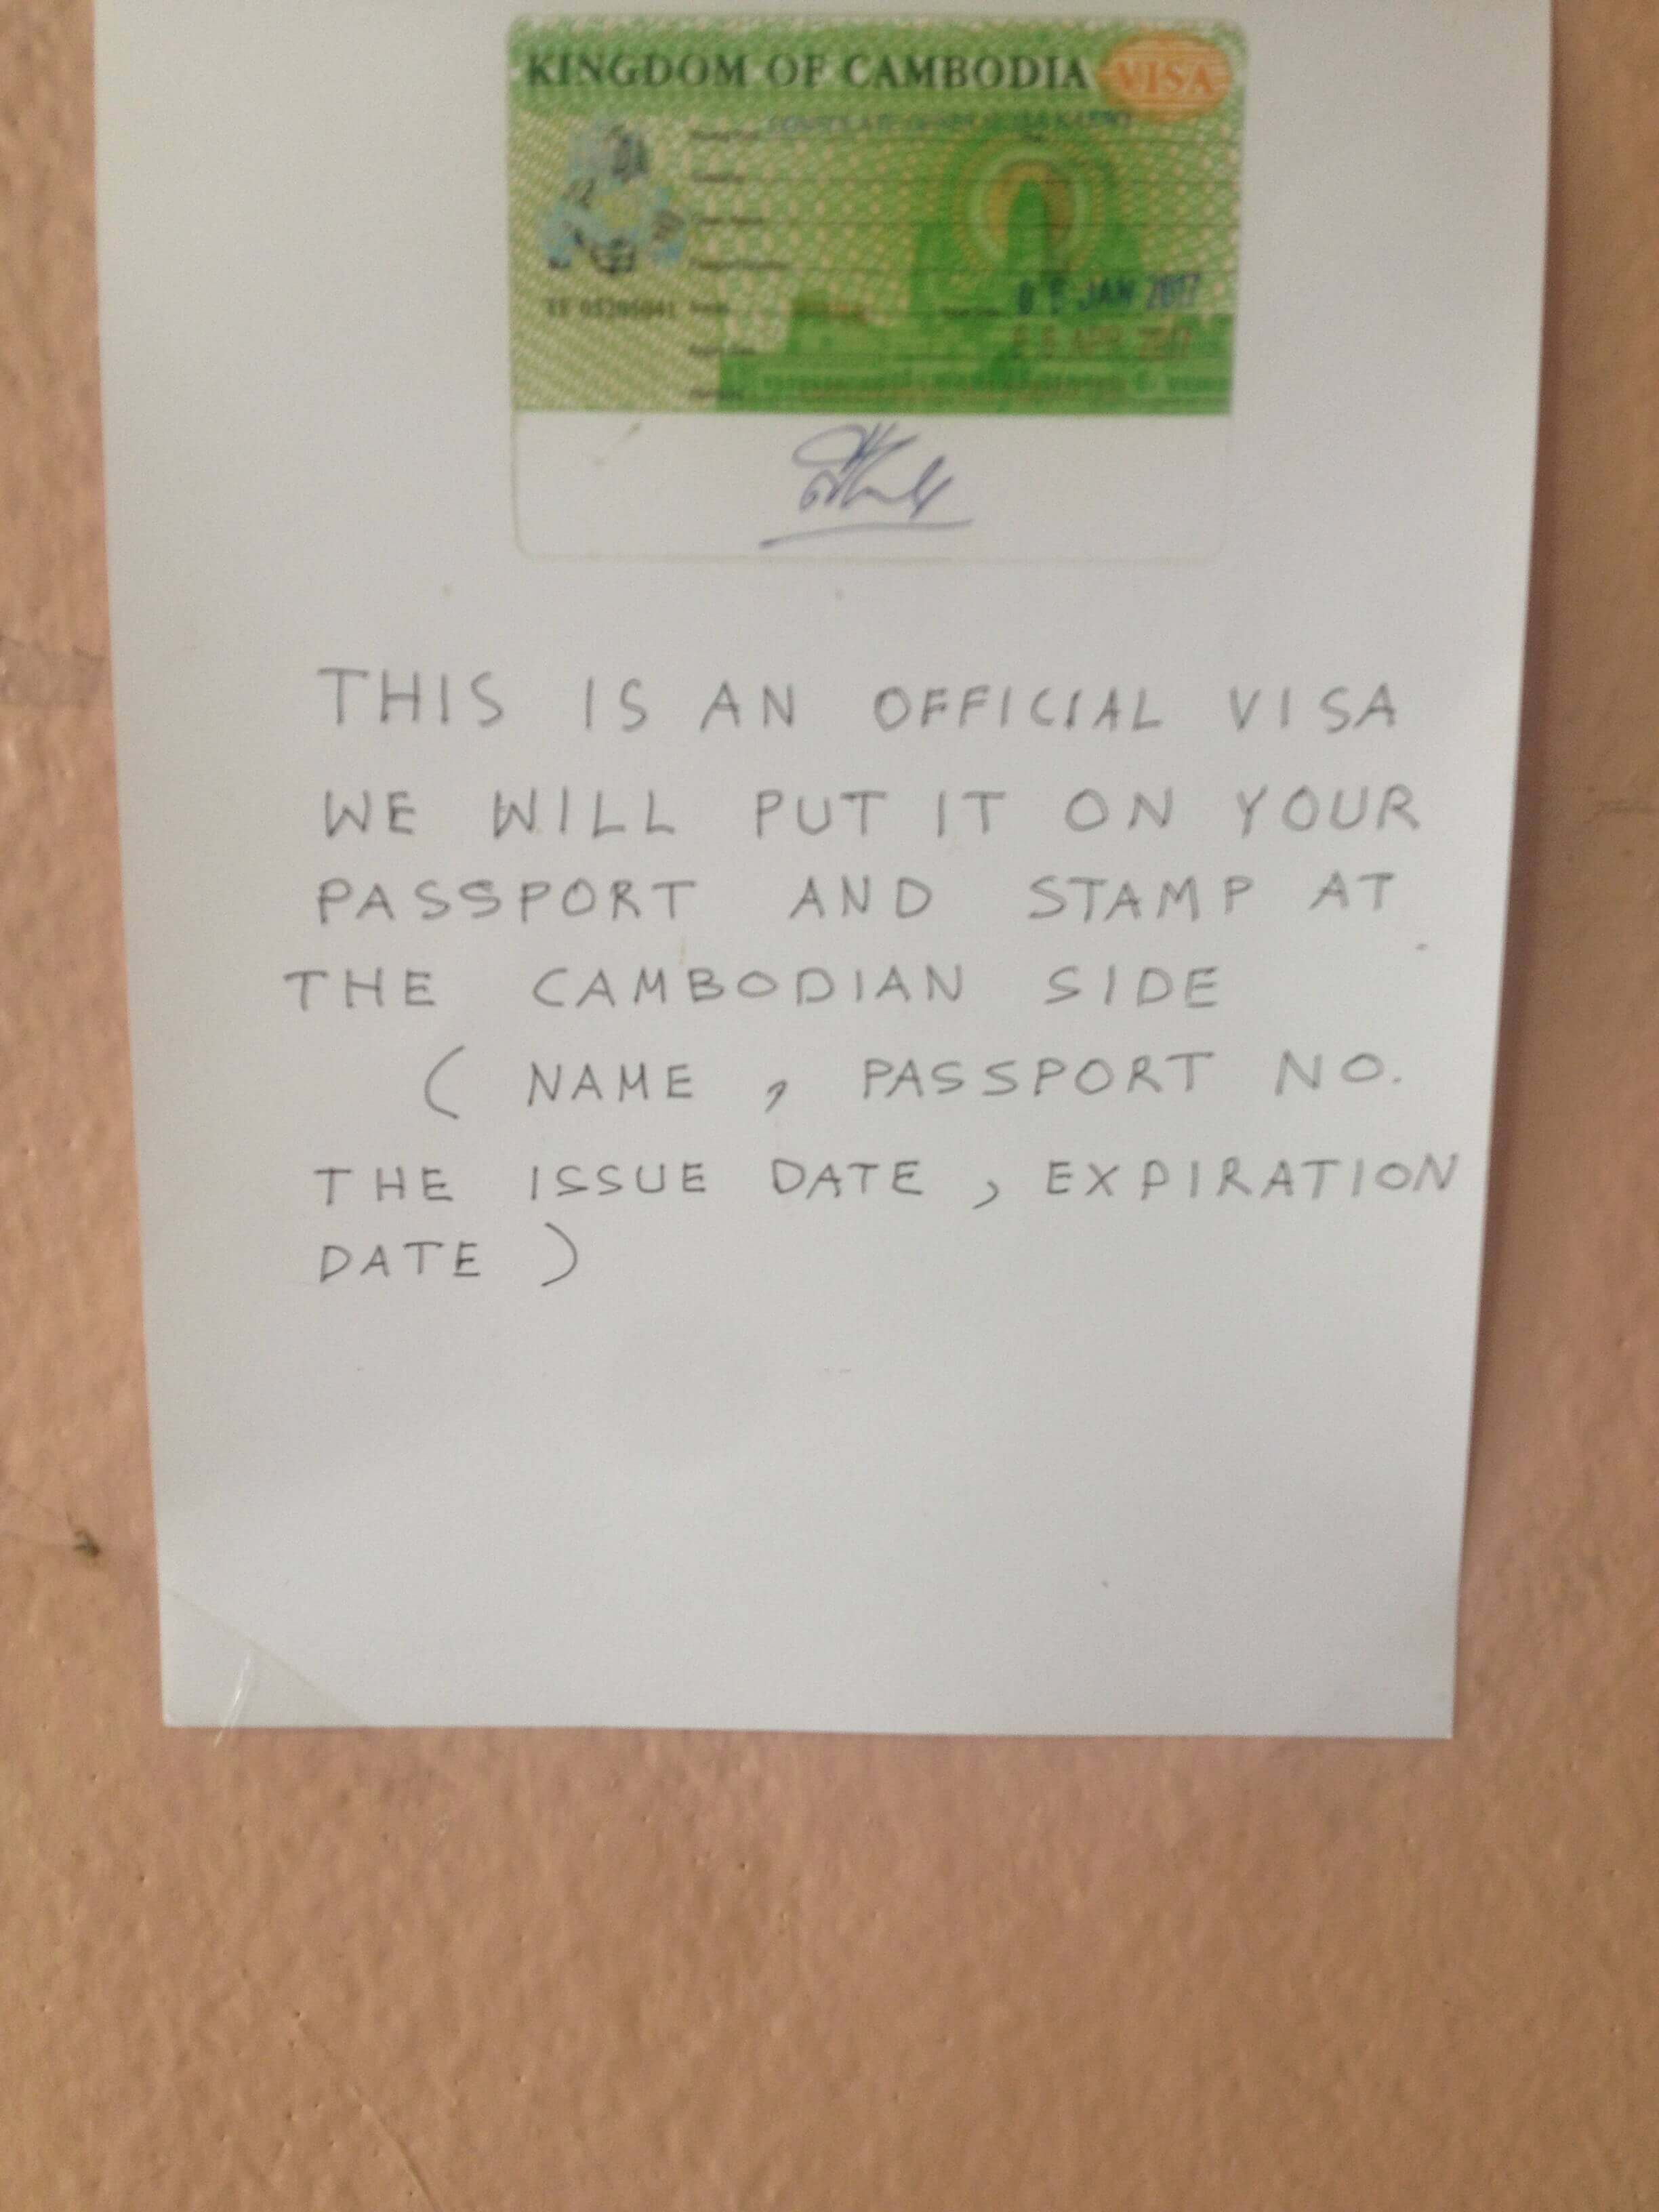 KINGDOM OF CAMBODIA VISA
JAN 2017
APR 2017
THIS IS AN OFFICIAL VISA
WE WILL PUT IT ON YOUR
PASSPORT AND STAMP AT
THE CAMBODIAN SIDE
( NAME , PASSPORT NO.
THE ISSUE DATE , EXPIRATION
DATE )